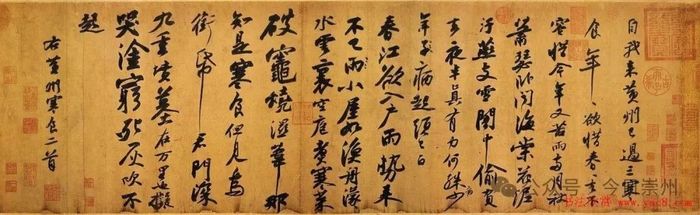 自我来黄州已過三寒
食年〻欲惜春〻去不
容惜今年又苦雨兩月秋
蕭瑟卧聞海棠花泥
汙燕支雪闇中偷負
去夜半真有力何殊少
年子病起頭已白
春江欲入户雨勢来
不已雨小屋如漁舟濛〻
水雲裏空庖煮寒菜
破竈燒濕葦那
知是寒食但見烏
銜帋君門深
九重墳墓在万里也擬
哭塗窮死灰吹不
起
右黄州寒食二首
公众号 · 今崇州
www.yac8.com